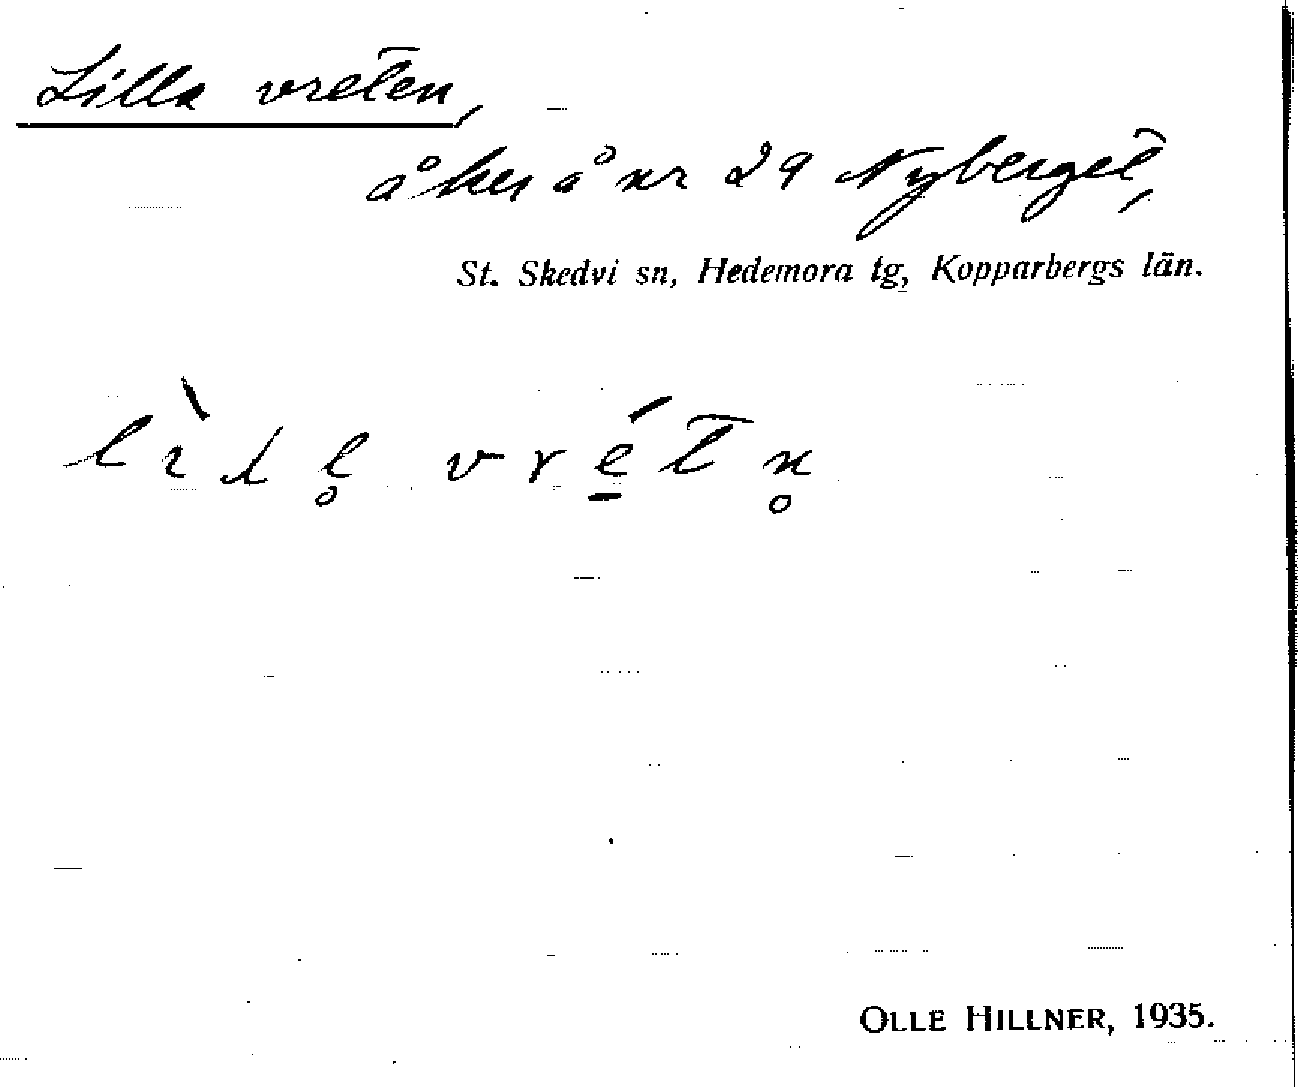 Lilla vreten,
åker å nr 29 Nyberget,
St. Skedvi sn, Hedemora tg, Kopparbergs län.
OLLE HILLNER, 1935.